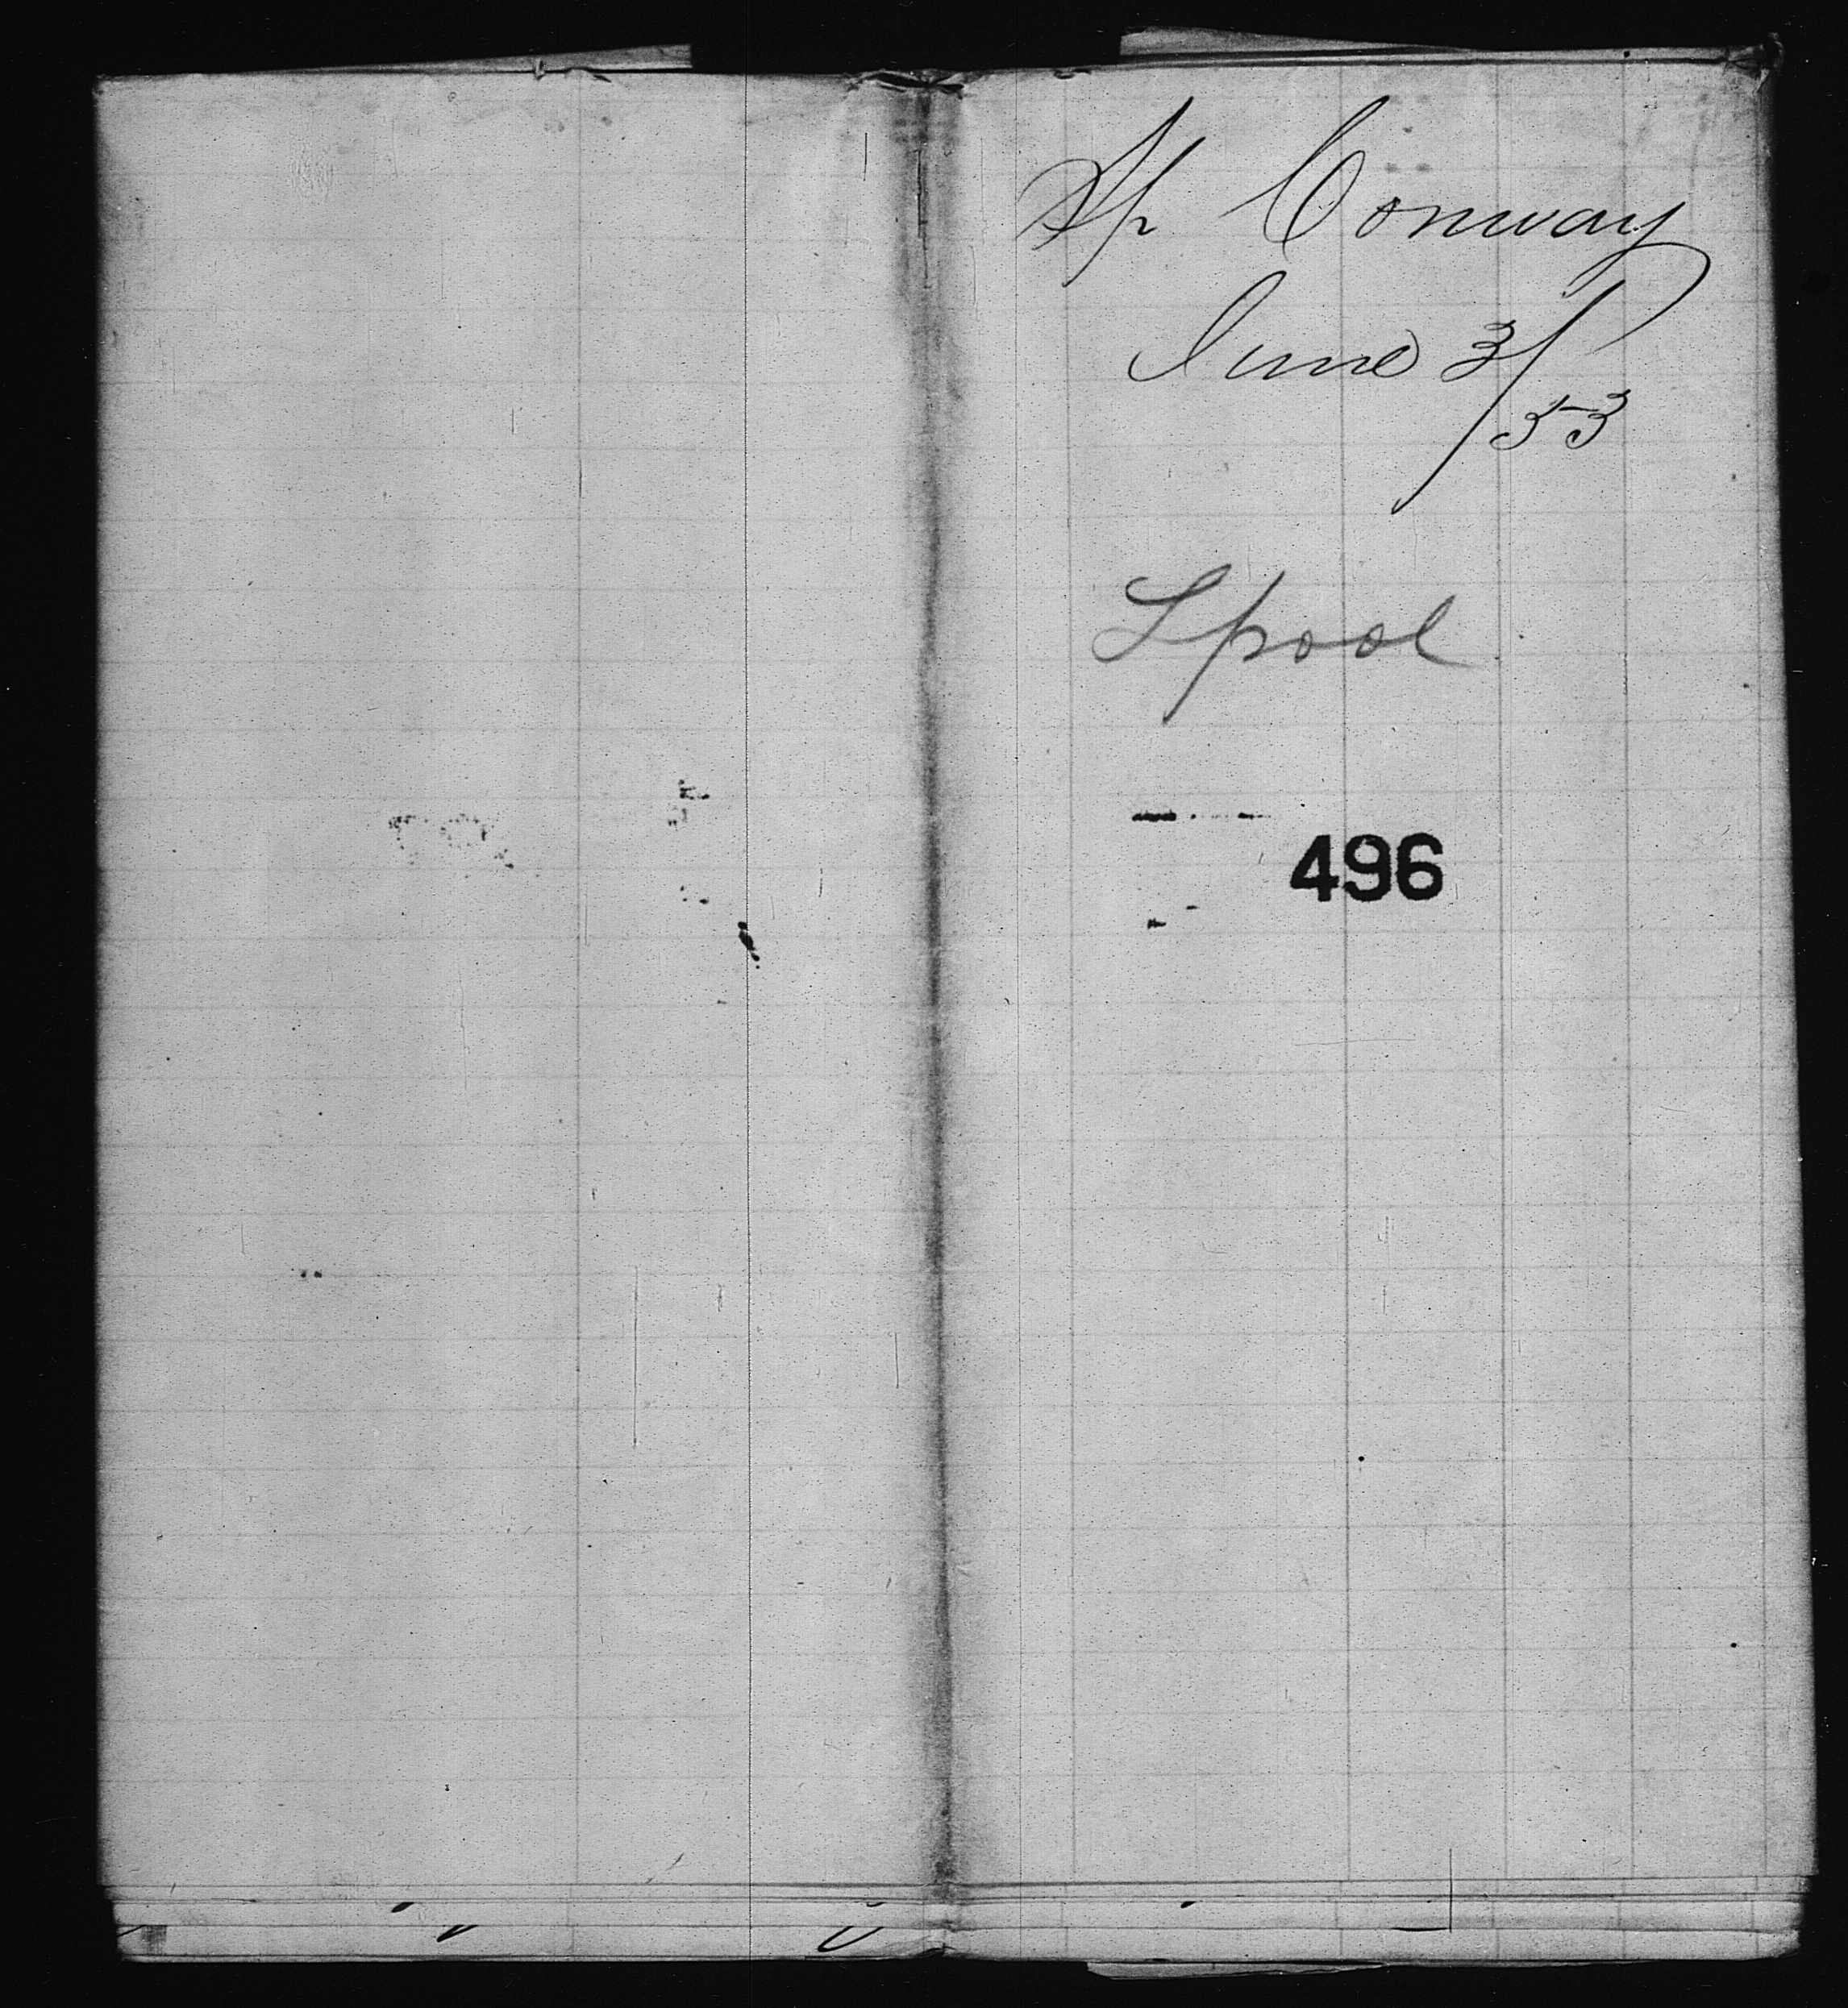 Sp Conway
June 3/
53
Lpool
496